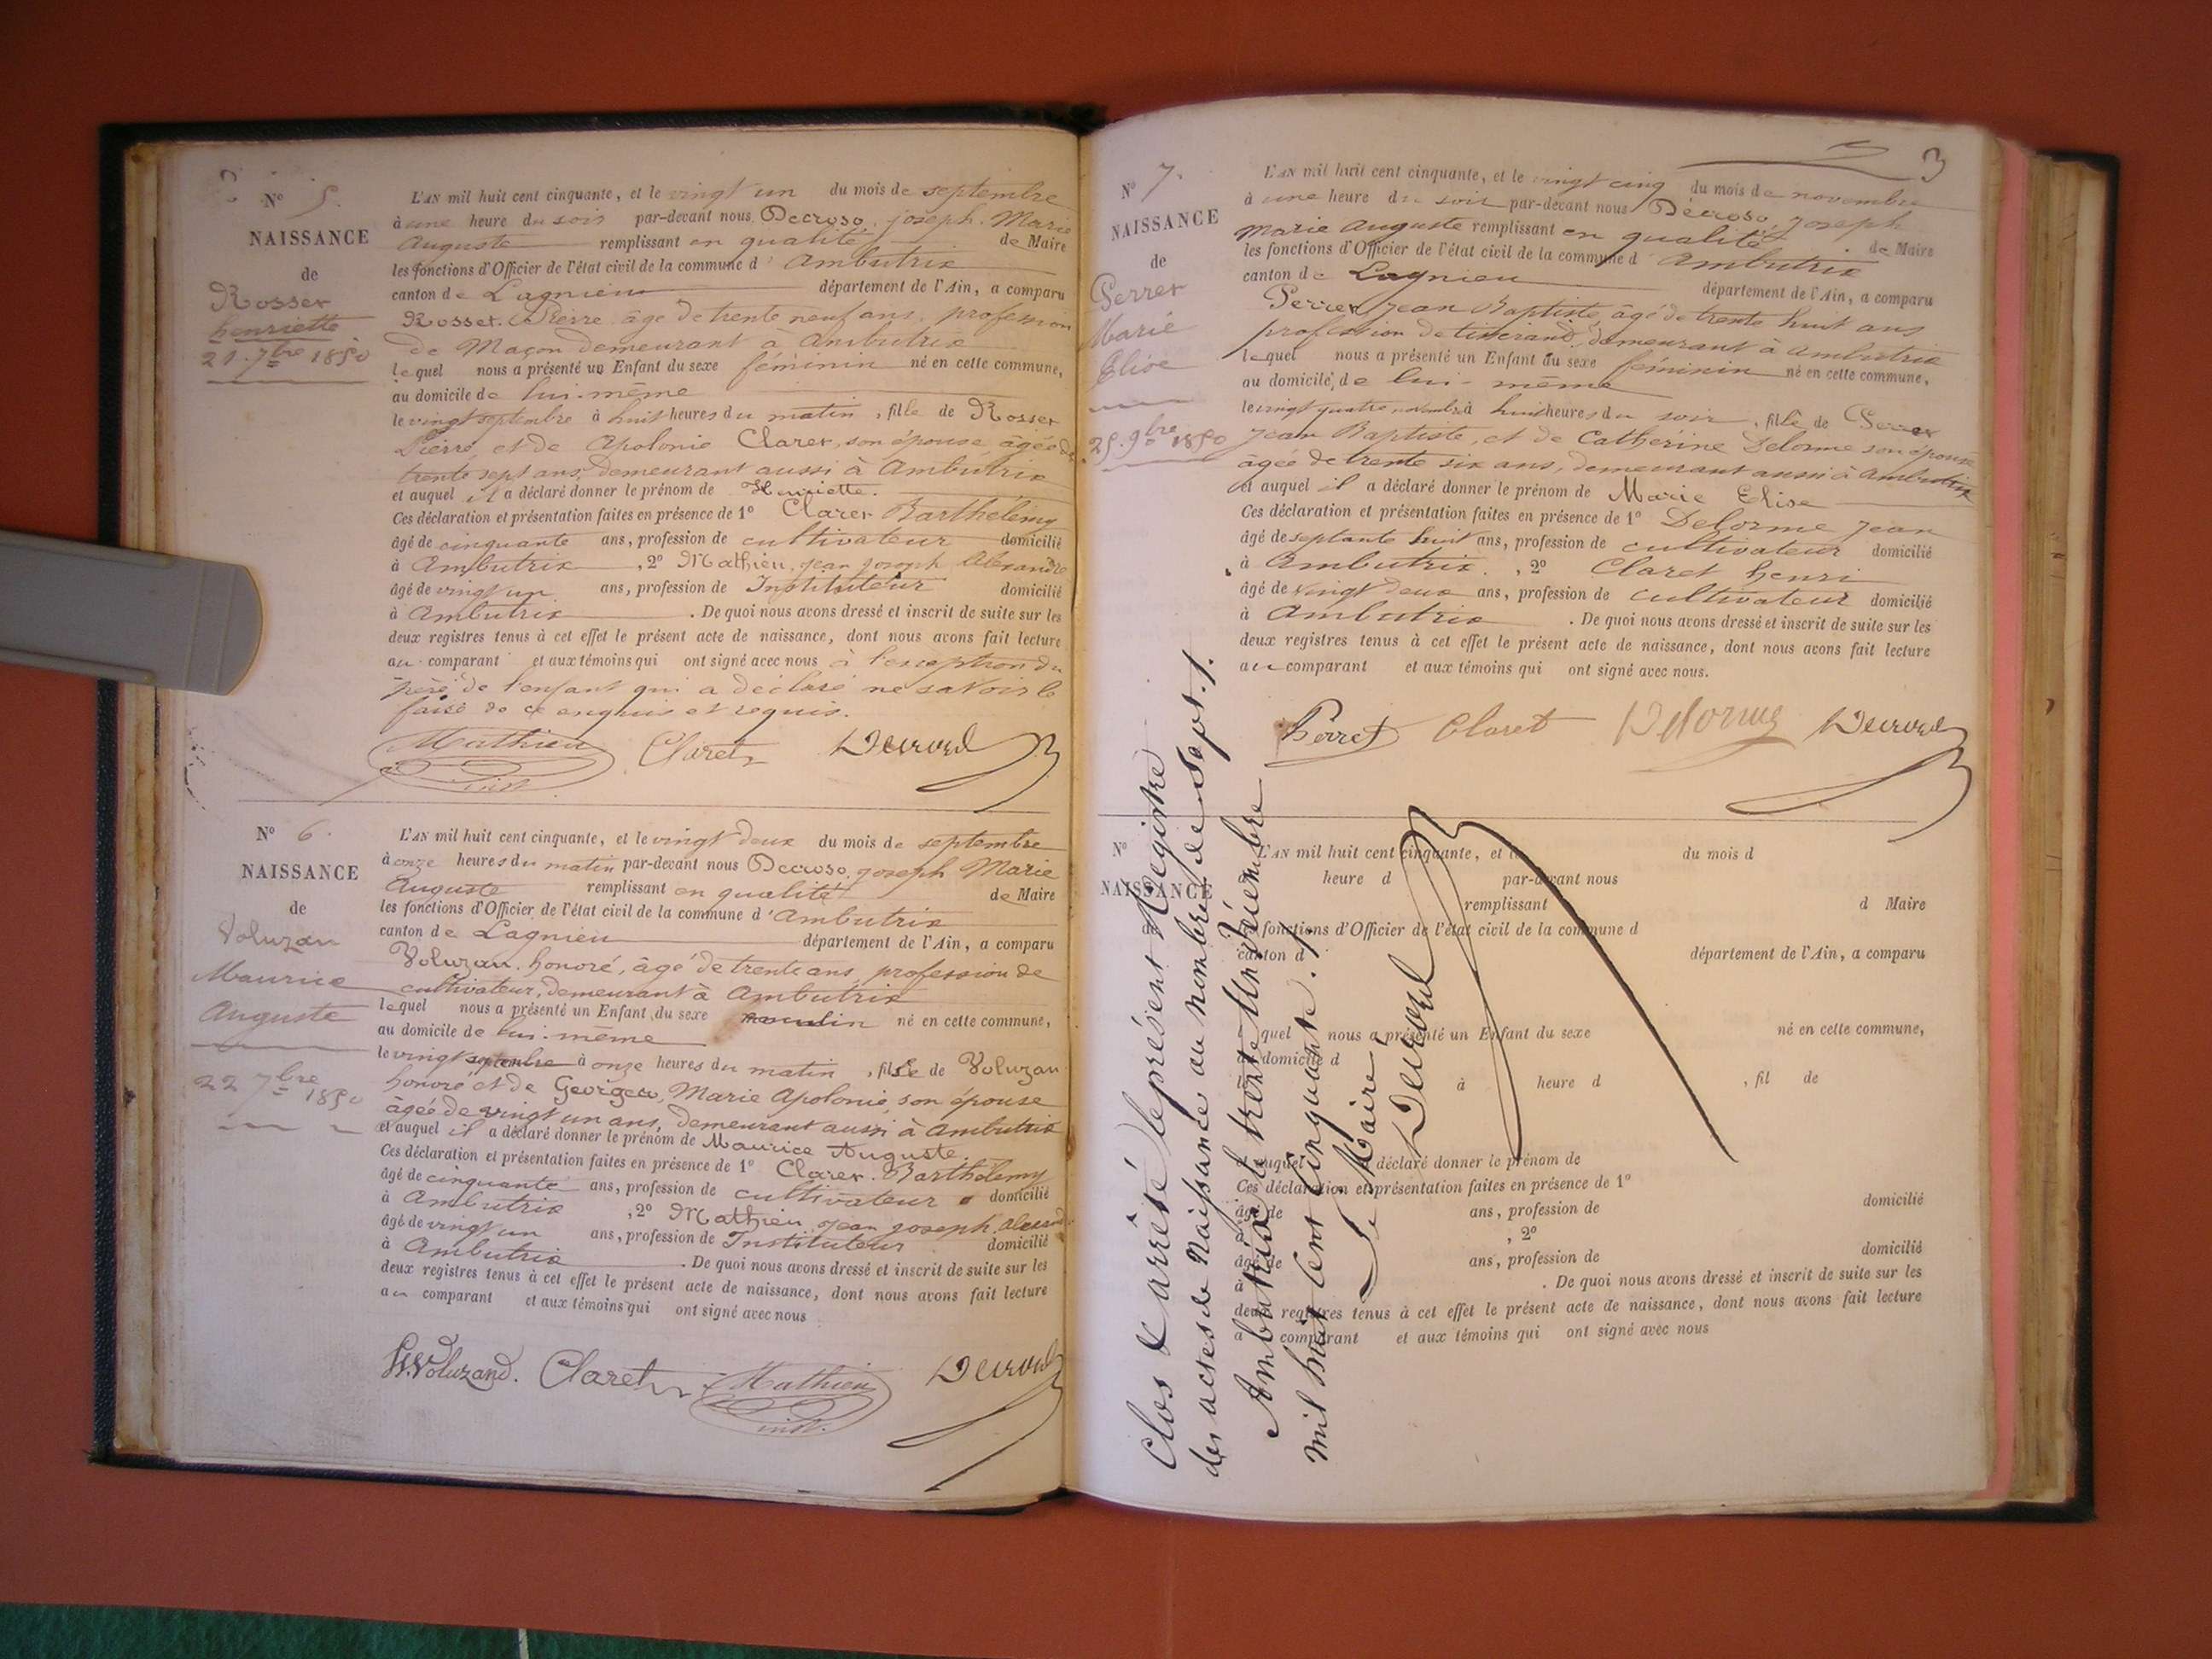 N° 5.
NAISSANCE
de
Rosset
henriette
21. 7bre 1850
L'AN mil huit cent cinquante, et le vingt un du mois de septembre
à une heure du soir par-devant nous Decroso, joseph. Marie
Auguste remplissant en qualité de Maire
les fonctions d'Officier de l'état civil de la commune d'Ambutrix
canton de Lagnieu département de l'Ain, a comparu
Rosset. Pierre âgé de trente neuf ans, profession
de Maçon demeurant à Ambutrix
lequel nous a présenté un Enfant du sexe féminin né en cette commune,
au domicile de lui-même
le vingt septembre à huit heures du matin, fille de Rosset
Pierre, et de Apolonie Claret, son épouse, âgée de
trente sept ans, demeurant aussi à Ambutrix
et auquel il a déclaré donner le prénom de Henriette.
Ces déclaration et présentation faites en présence de 1° Claret Barthélemy
âgé de cinquante ans, profession de cultivateur domicilié
à Ambutrix, 2° Mathieu, jean joseph Alexandre
âgé de vingt un ans, profession de Instituteur domicilié
à Ambutrix. De quoi nous avons dressé et inscrit de suite sur les
deux registres tenus à cet effet le présent acte de naissance, dont nous avons fait lecture
au comparant et aux témoins qui ont signé avec nous à l'exception du
père de l'enfant qui a déclaré ne savoir le
faire de ce enquis et requis.
Mathieu Claret
inst.
N° 6.
NAISSANCE
de
Voluzan
Maurice
Auguste
22 7bre 1850
L'AN mil huit cent cinquante, et le vingt deux du mois de septembre
à onze heures du matin par-devant nous Decroso, joseph Marie
Auguste remplissant en qualité de Maire
les fonctions d'Officier de l'état civil de la commune d'Ambutrix
canton de Lagnieu département de l'Ain, a comparu
Voluzan. honoré, âgé de trente ans, profession de
cultivateur, demeurant à Ambutrix
lequel nous a présenté un Enfant du sexe masculin né en cette commune,
au domicile de lui-même
le vingt septembre à onze heures du matin, fils de Voluzan
honoré et de Georges, Marie Apolonie, son épouse
âgée de vingt un ans, demeurant aussi à Ambutrix
et auquel il a déclaré donner le prénom de Maurice Auguste.
Ces déclaration et présentation faites en présence de 1° Claret. Barthélemy
âgé de cinquante ans, profession de cultivateur domicilié
à Ambutrix, 2° Mathieu, jean joseph. Alexandre
âgé de vingt un ans, profession de Instituteur domicilié
à Ambutrix. De quoi nous avons dressé et inscrit de suite sur les
deux registres tenus à cet effet le présent acte de naissance, dont nous avons fait lecture
au comparant et aux témoins qui ont signé avec nous
H. Voluzand. Claret Mathieu
inst.
3
N° 7.
NAISSANCE
de
Perret
Marie
Elise
25. 9bre 1850
L'AN mil huit cent cinquante, et le vingt cinq du mois de novembre
à une heure du soir par-devant nous Décroso, Joseph
Marie Auguste remplissant en qualité de Maire
les fonctions d'Officier de l'état civil de la commune d'Ambutrix
canton de Lagnieu département de l'Ain, a comparu
Perret, jean Baptiste, âgé de trente huit ans
profession de tisserand, demeurant à Ambutrix
lequel nous a présenté un Enfant du sexe féminin né en cette commune,
au domicile de lui-même
le vingt quatre novembre à huit heures du soir, fille de Perret
jean Baptiste, et de Catherine Delorme son épouse
âgée de trente six ans, demeurant aussi à Ambutrix
et auquel il a déclaré donner le prénom de Marie Elise
Ces déclaration et présentation faites en présence de 1° Delorme jean
âgé de septante huit ans, profession de cultivateur domicilié
à Ambutrix., 2° Claret henri
âgé de vingt deux ans, profession de cultivateur domicilié
à Ambutrix. De quoi nous avons dressé et inscrit de suite sur les
deux registres tenus à cet effet le présent acte de naissance, dont nous avons fait lecture
au comparant et aux témoins qui ont signé avec nous.
Perret Claret Delorme
N°
NAISSANCE
L'AN mil huit cent cinquante, et le du mois d
heure d par-devant nous
remplissant d Maire
fonctions d'Officier de l'état civil de la commune d
canton d département de l'Ain, a comparu
quel nous a présenté un Enfant du sexe né en cette commune,
domicile d
à heure d, fil de
auquel déclaré donner le prénom de
Ces déclaration et présentation faites en présence de 1°
âgé de ans, profession de domicilié
, 2°
âgé de ans, profession de domicilié
à. De quoi nous avons dressé et inscrit de suite sur les
deux registres tenus à cet effet le présent acte de naissance, dont nous avons fait lecture
a comparant et aux témoins qui ont signé avec nous
Clos & arrêté le présent Registre
des actes de Naissance au nombre de Sept.
Ambutrix le trente un Décembre
mil huit Cent Cinquante.
Le Maire